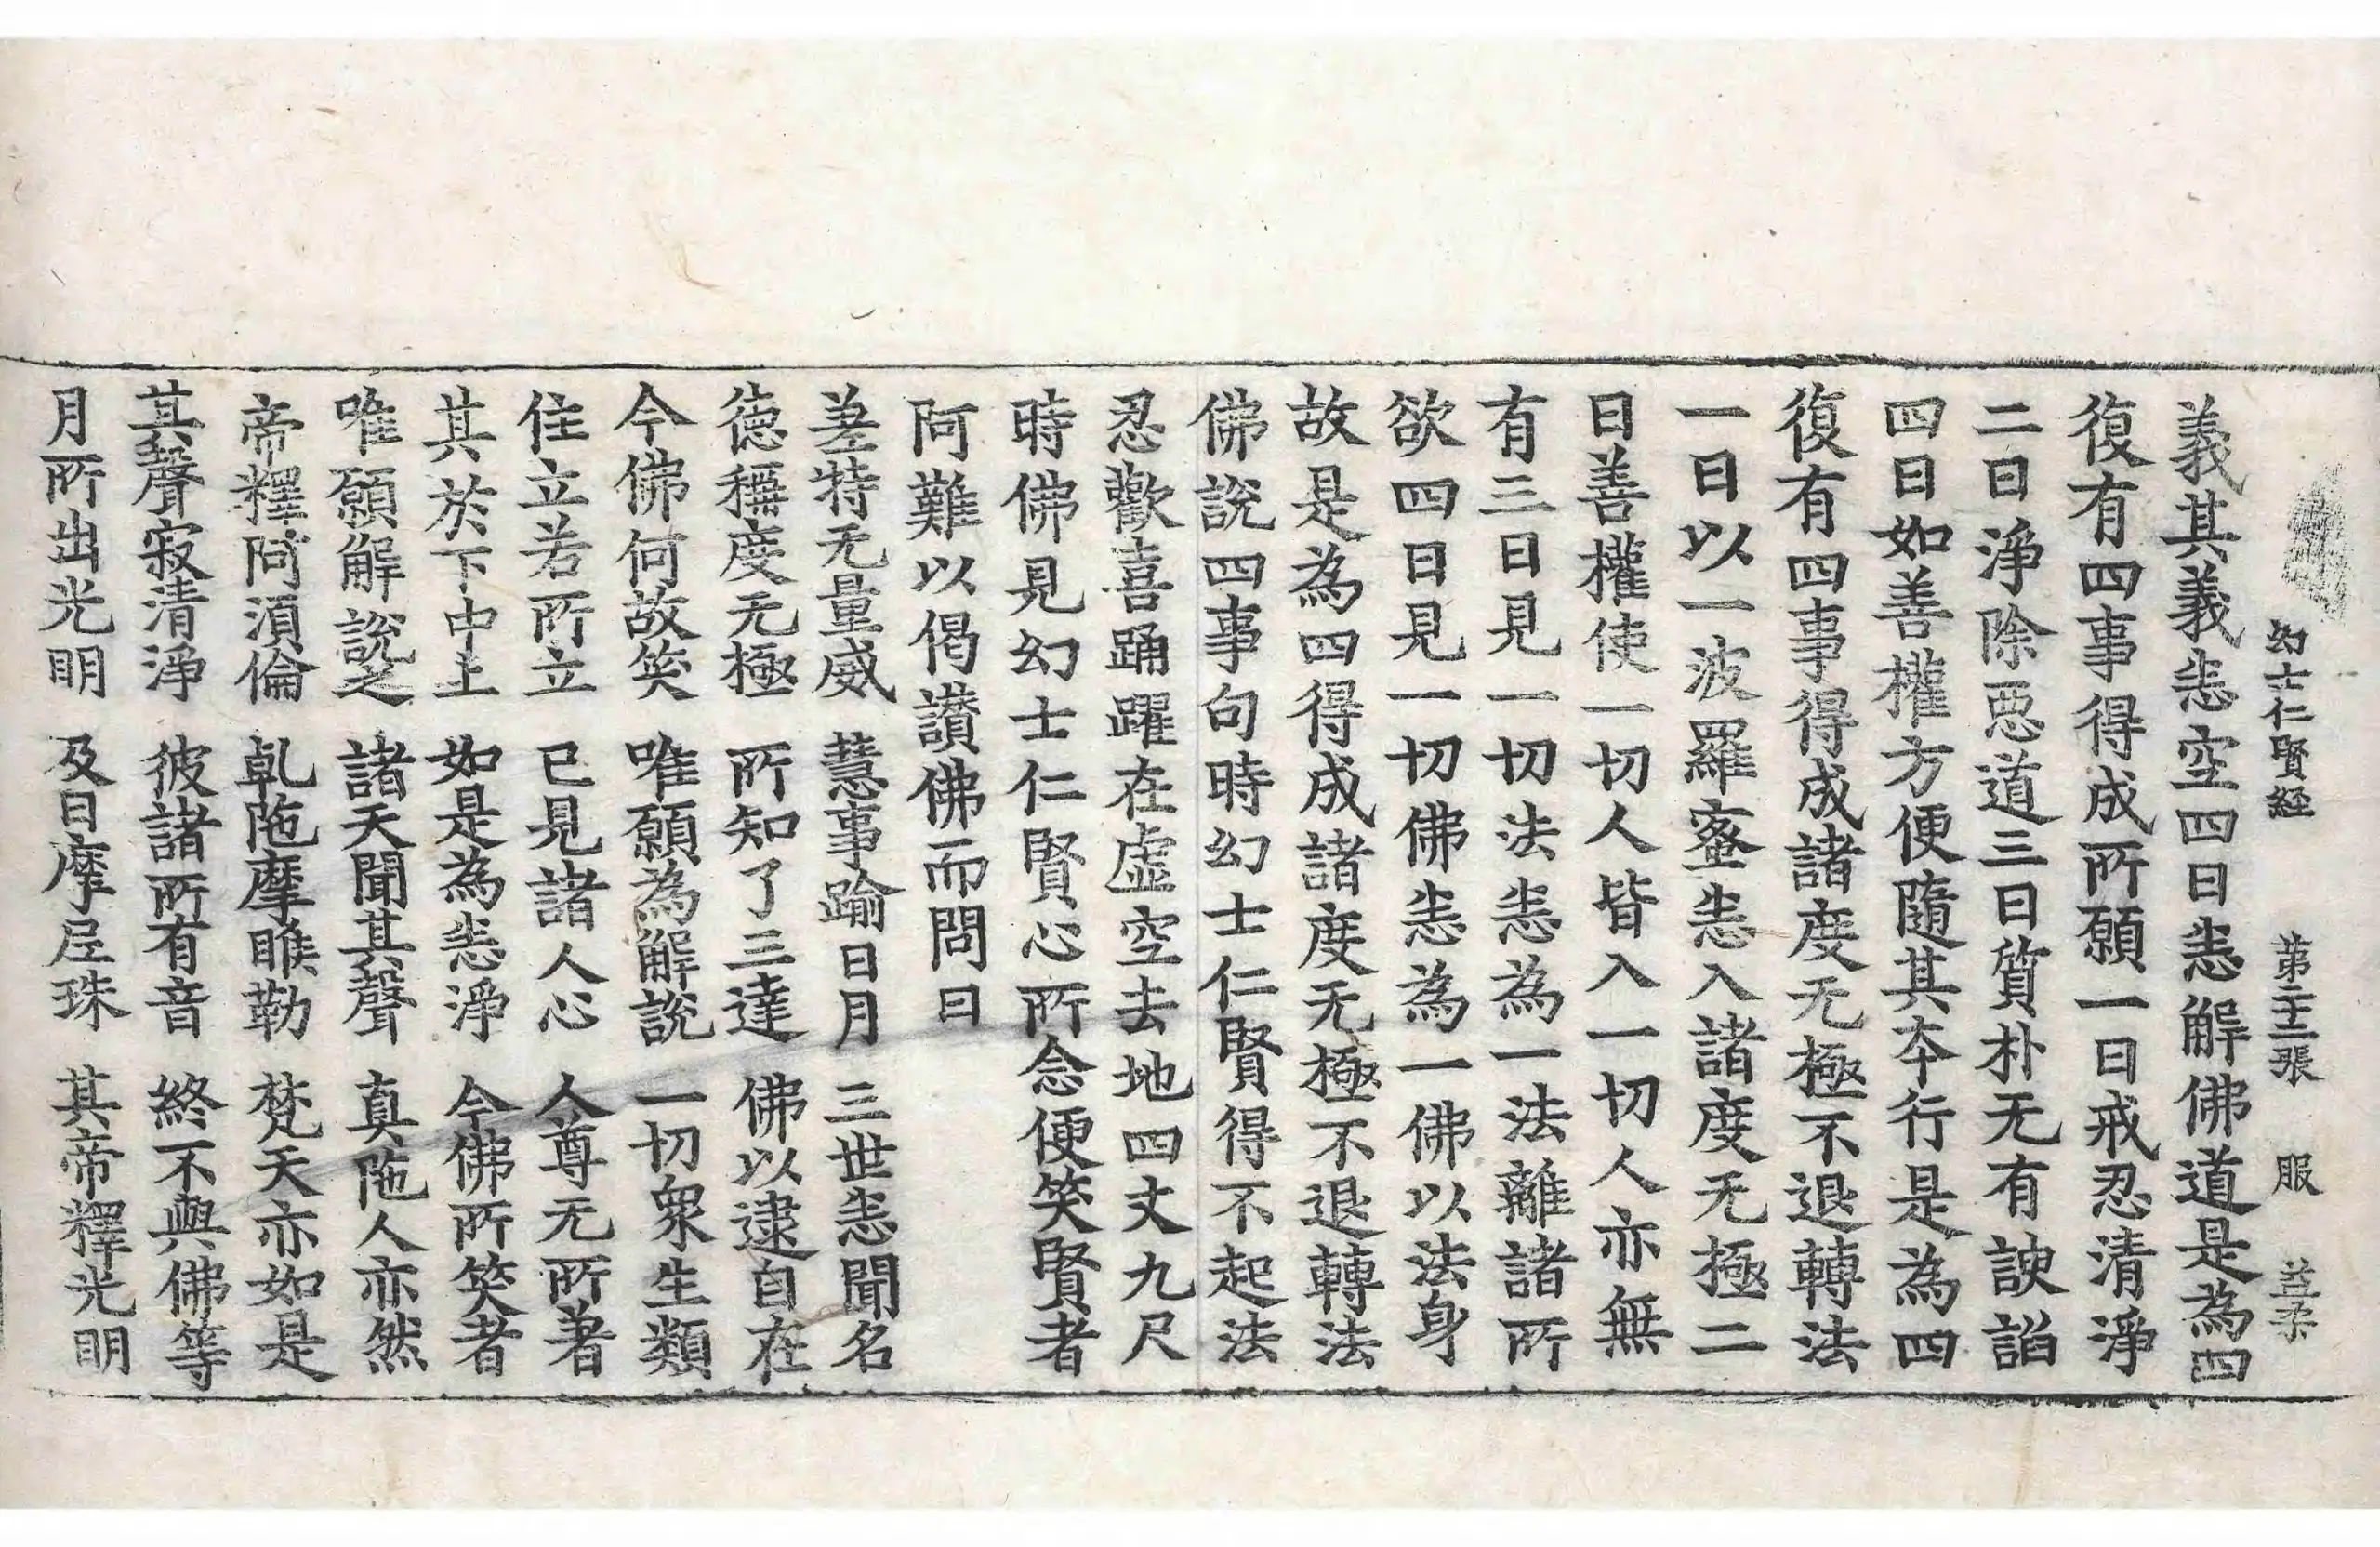 幻士仁賢経 第二十二張 服
義其義恙空四曰恙解佛道是為四
復有四事得成所願一曰戒忍清淨
二曰淨除惡道三曰質朴无有諛諂
四曰如善權方便隨其夲行是為四
復有四事得成諸度无極不退轉法
一曰以一波羅蜜恙入諸度无極二
曰善權使一切人皆入一切人亦無
有三曰見一切法恙為一法離諸所
欲四曰見一切佛恙為一佛以法身
故是為四得成諸度无極不退轉法
佛說四事句時幻士仁賢得不起法
忍歡喜踊躍在虛空去地四丈九尺
時佛見幻士仁賢心所念便笑賢者
阿難以偈讃佛而問曰
差特无量威 慧事踰日月 三世恙聞名
德稱度无極 所知了三達 佛以逮自在
今佛何故笑 唯願為解說 一切眾生類
住立若所立 已見諸人心 人尊无所著
其於下中上 如是為恙淨 今佛所笑者
唯願解說之 諸天聞其聲 真陁人亦然
帝釋阿須倫 乹陁摩睺勒 梵天亦如是
其聲寂清淨 彼諸所有音 終不與佛等
月所出光明 及日摩尼珠 其帝釋光明